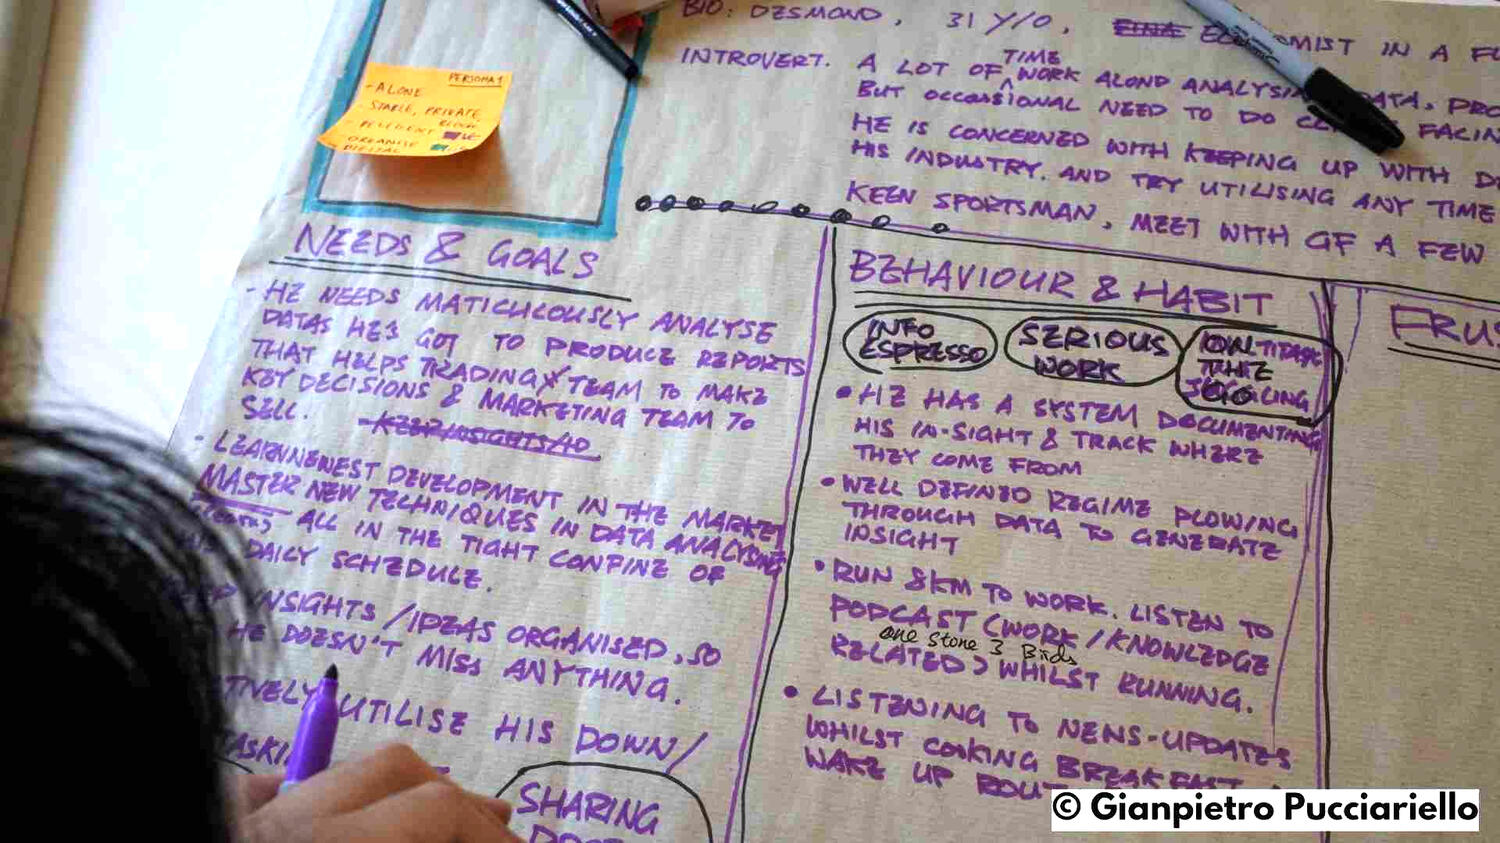 PERSONA 1
- ALONE
- STABLE, PRIVATE,
ORGANISE
DIGITAL
BIO: DESMOND, 31 Y/O, ECONOMIST IN A
INTROVERT. A LOT OF TIME WORK ALOND ANALYSI DATA, PRO
BUT OCCASIONAL NEED TO DO FACIN
HE IS CONCERNED WITH KEEPING UP WITH D
HIS INDUSTRY. AND TRY UTILISING ANY TIME
KEEN SPORTSMAN, MEET WITH GF A FEW
NEEDS & GOALS
- HE NEEDS MATICULOUSLY ANALYSE
DATAS HE'S GOT TO PRODUCE REPORTS
THAT HELPS TRADING TEAM TO MAKE
KEY DECISIONS & MARKETING TEAM TO
SELL.
- LEARN NEWEST DEVELOPMENT IN THE MARKET
MASTER NEW TECHNIQUES IN DATA ANALYSING
(learn) ALL IN THE TIGHT CONFINE OF
DAILY SCHEDULE.
INSIGHTS / IDEAS ORGANISED, SO
HE DOESN'T MISS ANYTHING.
TIVELY UTILISE HIS DOWN/
TASKI
SHARING
BEHAVIOUR & HABIT
INFO ESPRESSO
SERIOUS WORK
JOGGING
• HE HAS A SYSTEM DOCUMENTING
HIS IN-SIGHT & TRACK WHERE
THEY COME FROM
• WELL DEFINED REGIME PLOWING
THROUGH DATA TO GENERATE
INSIGHT
• RUN 8KM TO WORK. LISTEN TO
PODCAST (WORK / KNOWLEDGE
one stone 3 Birds
RELATED) WHILST RUNNING.
• LISTENING TO NEWS-UPDATES
WHILST COOKING BREAKFAST
WAKE UP ROUT
FRUS
© Gianpietro Pucciariello